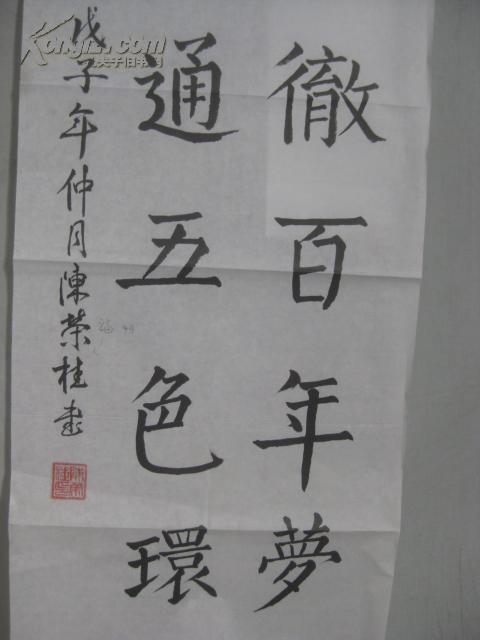 徹百年夢
通五色環
戊子年仲月陳榮桂書
Kongfz.com
孔夫子旧书网